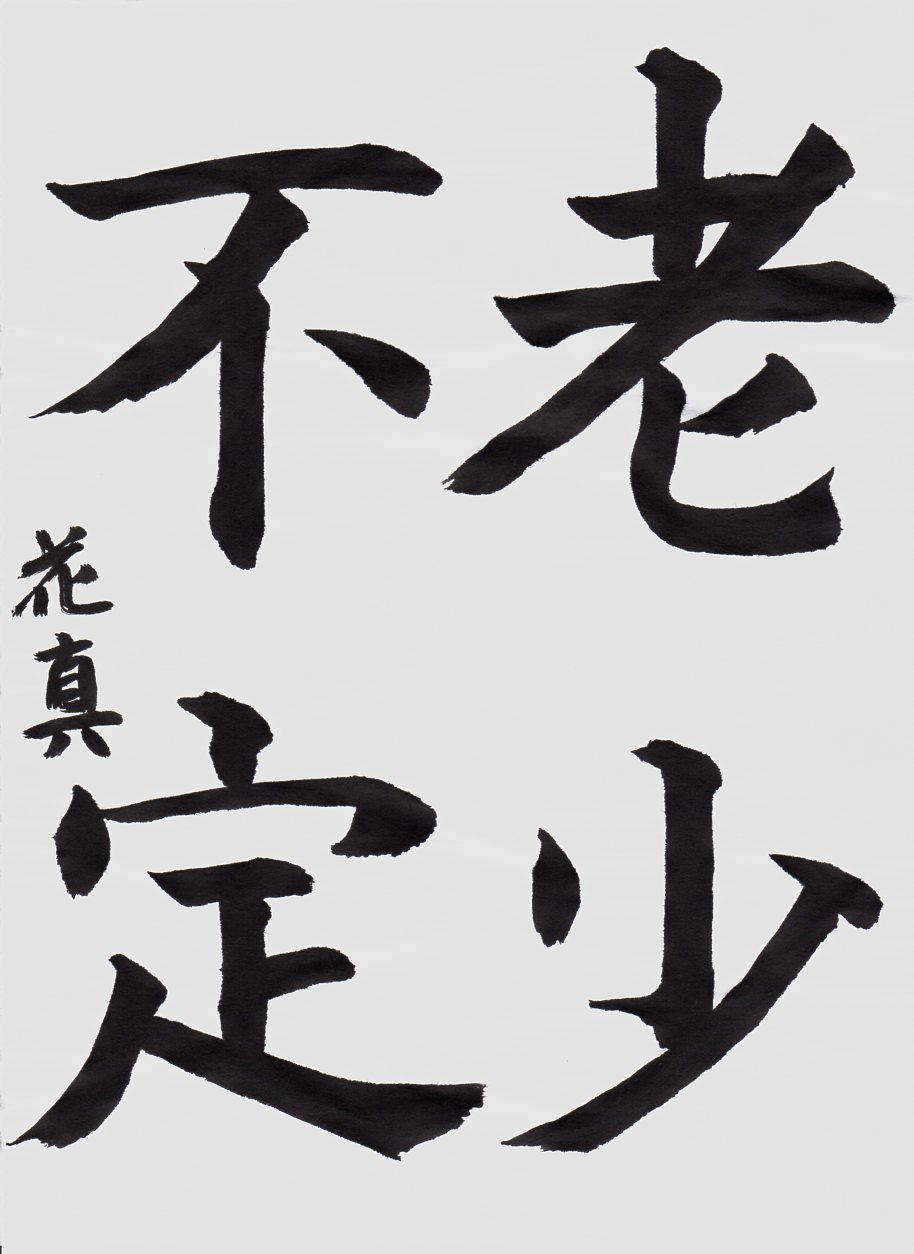 老少
不定
花真